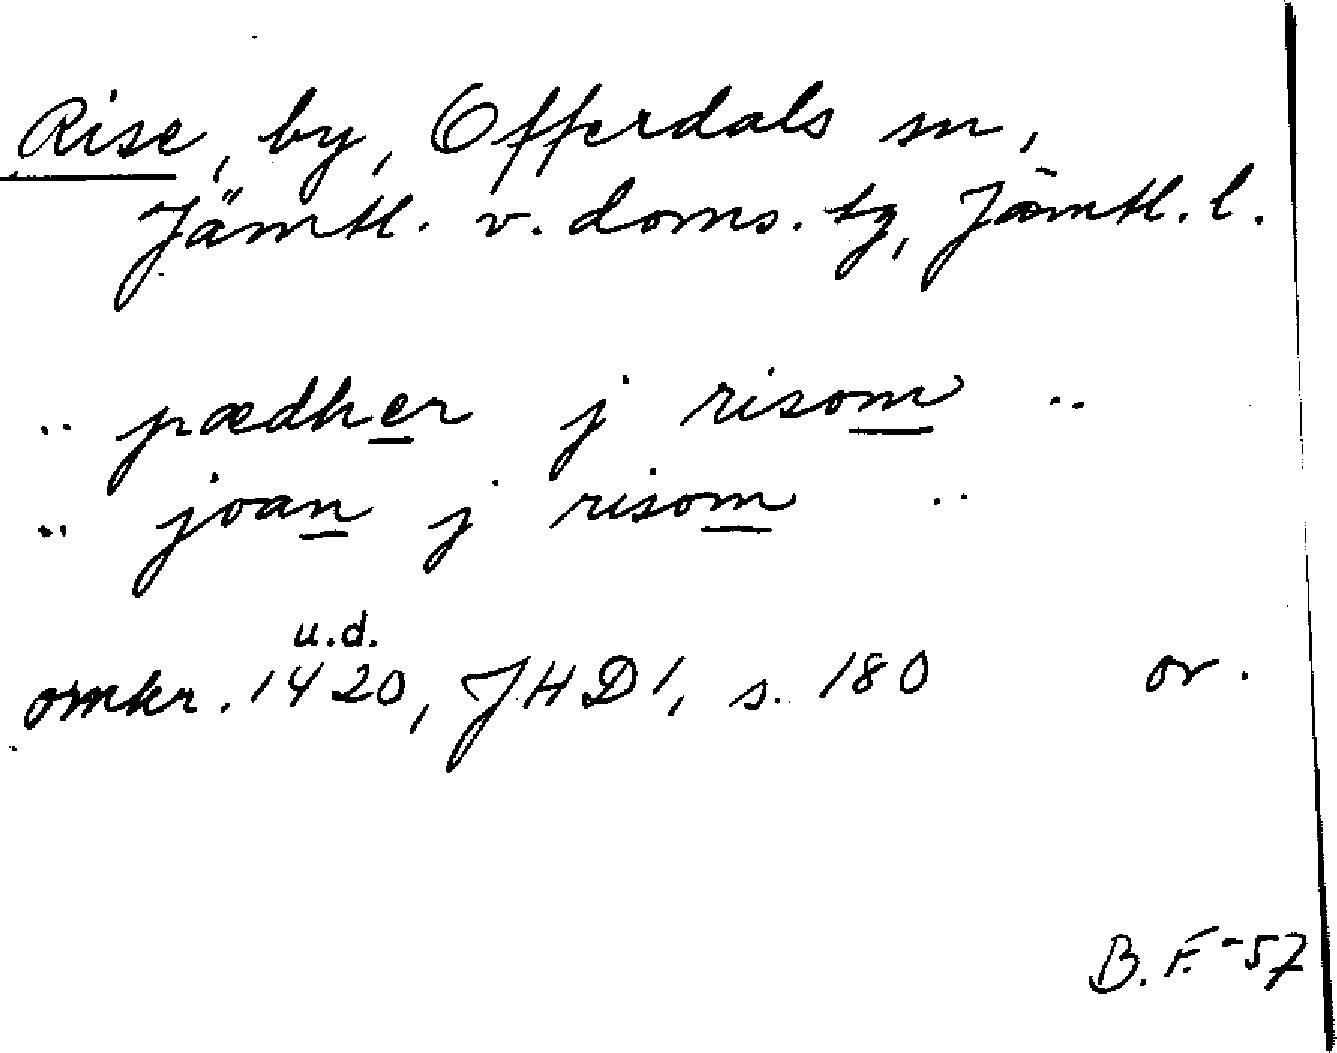 Rise, by, Offerdals sn,
Jämtl. v. doms. tg, Jämtl. l.
.. pædher j risom ..
.. joan j risom ..
u.d.
omkr. 1420, JHD 1, s. 180 or.
B. F. -57